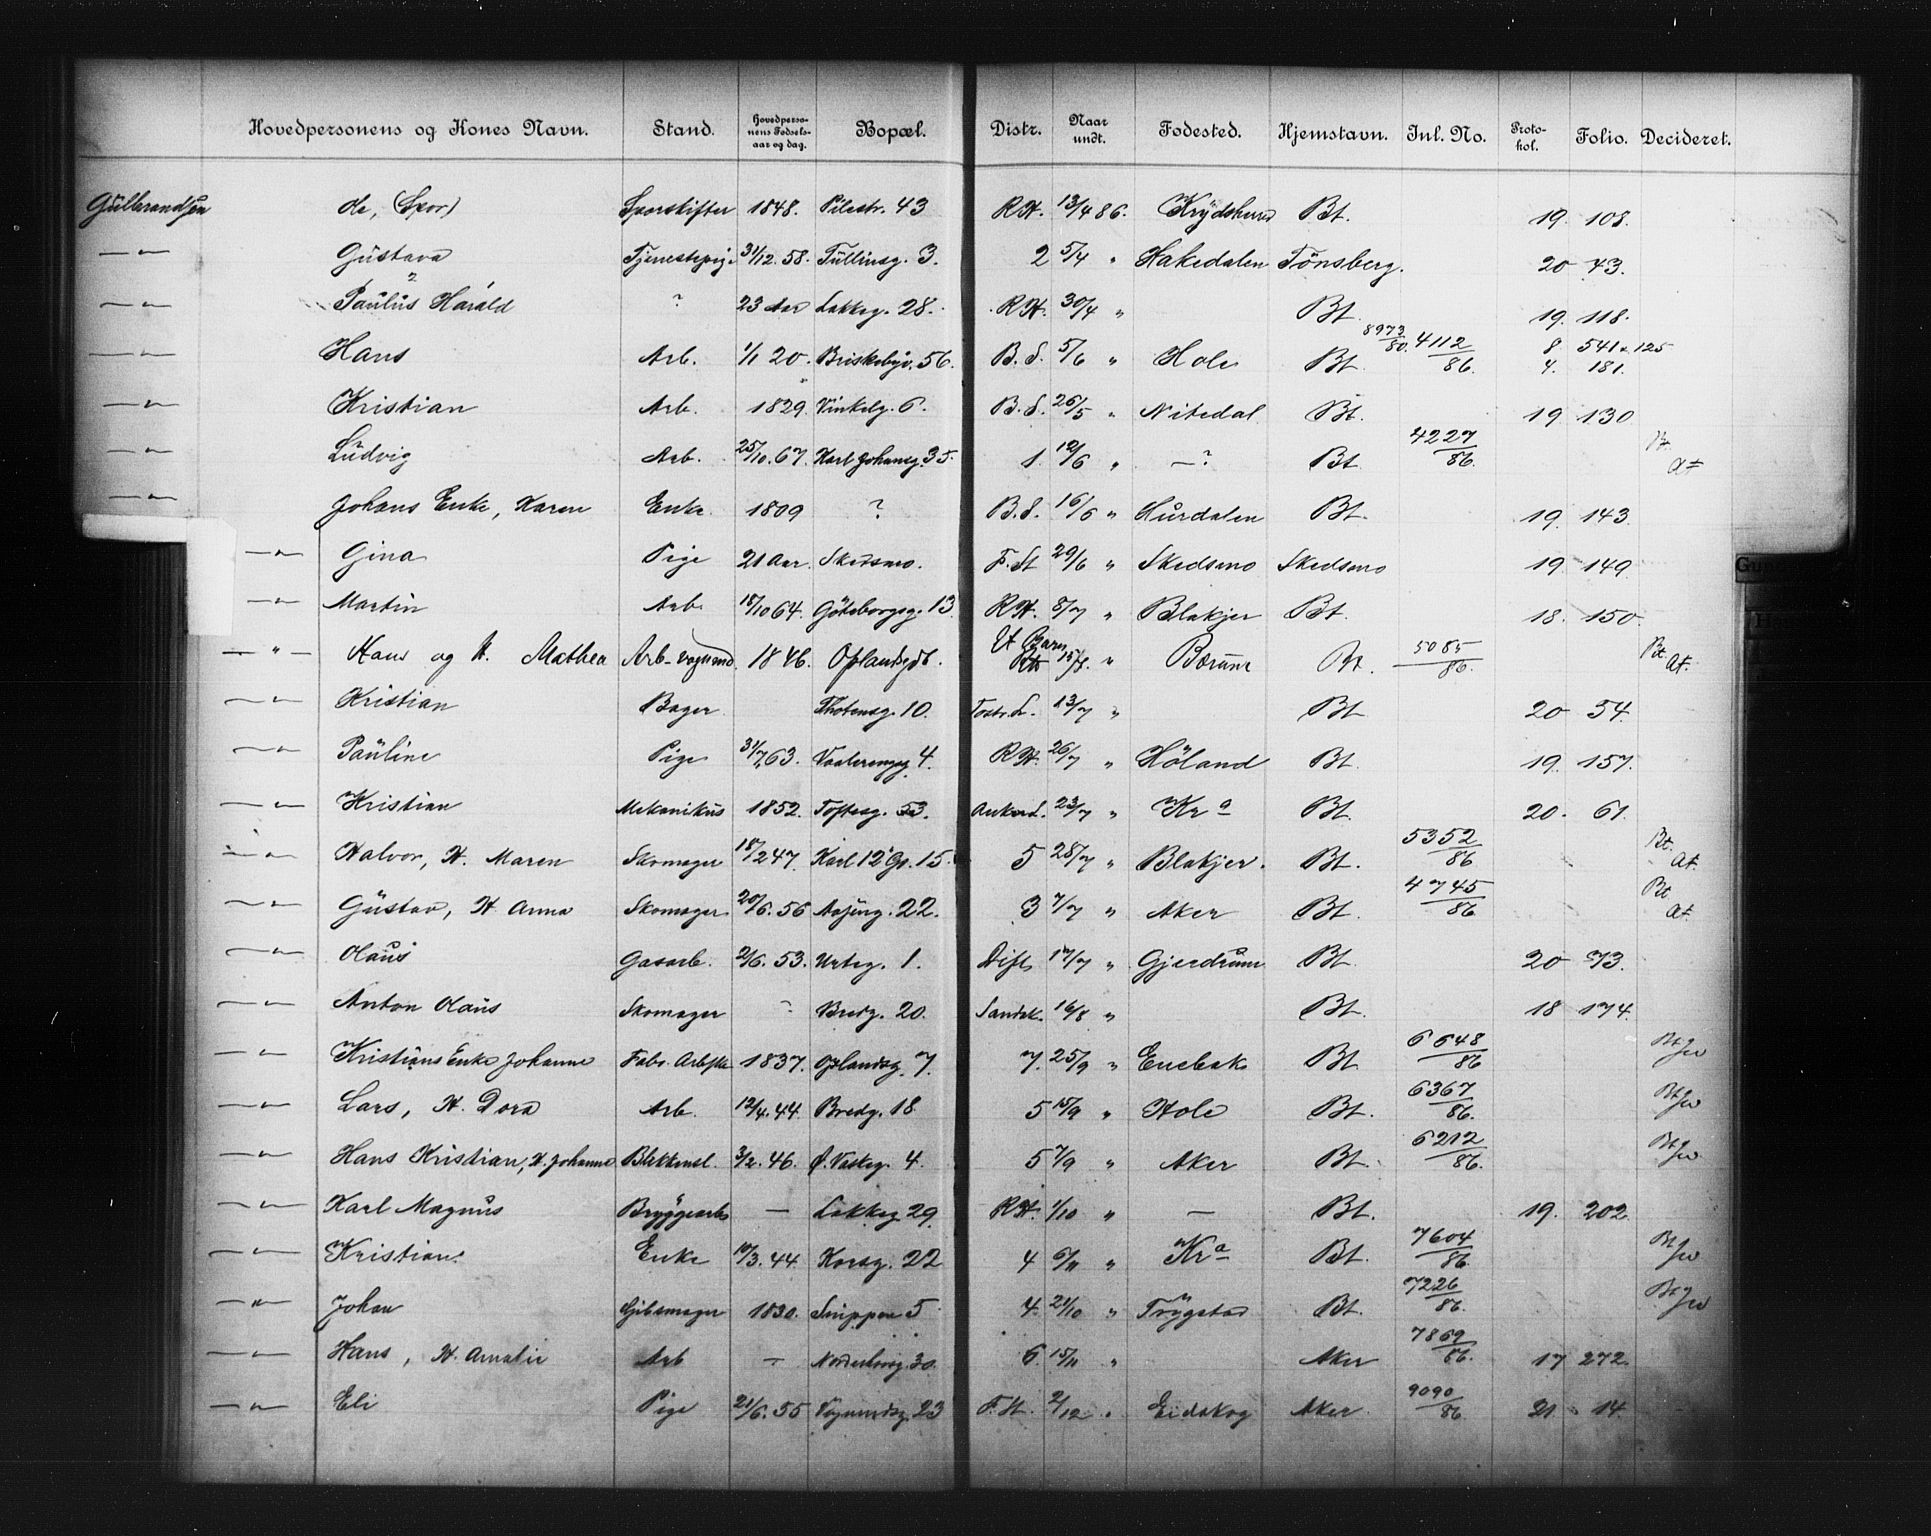 Hovedpersonens og Kones Navn. Stand. Hovedpersonens Fødselsaar og dag. Bopæl. Distr. Naar undt. Fødested. Hjemstavn. Inl. No. Protokol. Folio. Decideret.
Gulbrandsen de, (Spor) Sporskifter 1848. Pilestr. 43 R.H. 13/4 86. Krydsherred Bt. 19. 108.
—"— Gustava Tjenestepige 31/12. 58. Tullinsg. 3. 2 5/4 " Hakedalen Tönsberg. 20 43.
—"— Paulus Harald ? 23 Aar Lakkeg. 28. R.H. 30/4 " Bt. 19. 118.
—"— Hans Arb. 1/1 20. Briskebyv. 56. B.S. 5/6 " Hole Bt. 8973/80. 4112/86. 8 541 125 4. 181.
—"— Kristian Arb. 1829. Vinkelg. 6. B.S. 26/5 " Nitedal Bt. 19 130
—"— Ludvig Arb. 25/10. 67. Karl Johansg. 35. 1. 12/6 " —? Bt. 4227/86. Bt. At
—"— Johans Enke, Karen Enke 1809 ? B.S. 16/6 " Hurdalen Bt. 19. 143.
—"— Gina Pige 21 Aar. Skedsmo. F. St 29/6 " Skedsmo Skedsmo 19 149.
—"— Martin Arb. 18/10 64. Göteborgsg. 13 R.H. 8/7 " Blakjer Bt. 18. 150.
—"— Hans og H. Mathea Arb. - vognmd 1846. Oplandsgd. " Bærum Bt. 5085/86. Bt. At.
—"— Kristian Bager Thotensg. 10. 13/7 " Bt 20 54.
—"— Pauline Pige 31/7 63. Vaalerengsg. 4. R.H. 26/7 " Höland Bt. 19. 157.
—"— Kristian Mekanikus 1852. Toftesg. 53. 23/7 " Kra Bt. 20. 61.
—"— Halvor, H. Maren Skomager 18/2 47. Karl 12 Gs. 15. 5 28/7 " Blakjer. Bt. 5352/86 Bt. At.
—"— Gustav, H. Anna Skomager 20/6. 56 22. 3 7/7 " Aker Bt. 4745/86 Bt At.
—"— Olaus Gasarb. 2/6. 53. Urteg. 1. Dist. 17/7 " Gjerdrum Bt. 20 73.
—"— Anton Olaus Skomager ? Bredg. 20. Sandvk. 16/8 " Bt. 18 174.
—"— Kristians Enke Johanne Fabr. Arbske 1837. Oplandsg. 7. 7. 25/9 " Enebak Bt. 6648/86
—"— Lars, H. Dora Arb. 12/4. 44. Bredg. 18 5 15/9 " Hole Bt. 6367/86.
—"— Hans Kristian, H. Johanne Blikkensl. 3/2. 46. Ø. Vaskeg. 4. 5 7/9 " Aker Bt. 6212/86.
—"— Karl Magnus Bryggearb — Lakkeg 29. R.H. 1/10 " — Bt. 19. 202
—"— Kristians Enke 10/3. 44. Korsg. 22 4 6/11 " Kra Bt. 7604/86.
—"— Johan Gibsmager 1830. Snippen 5 4. 21/10 " Trygstad Bt. 7226/86.
—"— Hans, H. Amalie Arb — 30. 6. 15/11 " Aker 7869/86. 17 272.
—"— Eli Pige 21/6. 55 23 F. H. 2/12 " Eidskog Aker 9090/86 21 14.